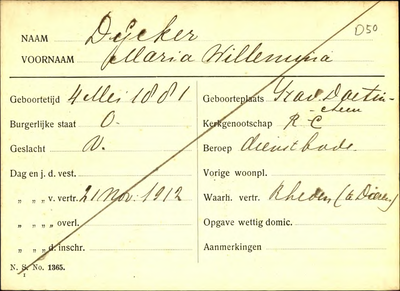 D50
NAAM Dÿcker
VOORNAAM Maria Willemina
Geboortetijd 4 Mei 1881 Geboorteplaats Stad Doetin-
chem
Burgerlijke staat O. Kerkgenootschap R-C
Geslacht V. Beroep dienstbode.
Dag en j. d. vest. Vorige woonpl.
„ „ „ v. vertr. 21 Nov. 1912 Waarh. vertr. Rheden (te Dieren)
„ „ „ overl. Opgave wettig domic.
„ „ „ d. inschr. Aanmerkingen
N. S. No. 1365.